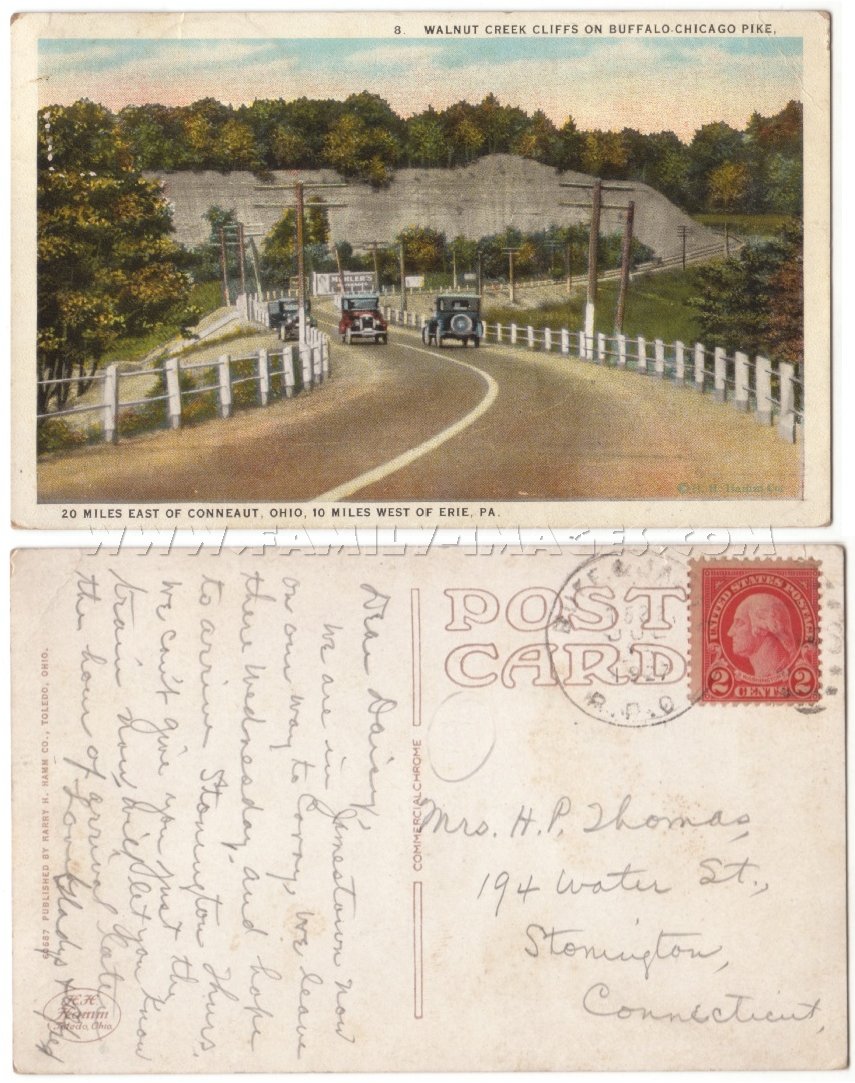 8. WALNUT CREEK CLIFFS ON BUFFALO-CHICAGO PIKE,
20 MILES EAST OF CONNEAUT, OHIO, 10 MILES WEST OF ERIE, PA.
WWW.FAMILY-IMAGES.COM
POST
CARD
BUFF. &
1927
R.P.O
UNITED STATES POSTAGE
2 CENTS 2
COMMERCIALCHROME
60687 PUBLISHED BY HARRY H. HAMM CO., TOLEDO, OHIO.
HH
Hamm
Toledo, Ohio.
Dear Daisy,
We are in Jamestown now
on our way to Corry, we leave
there Wednesday, and hope
to arrive Stonington Thurs.
We can't give you just the
train now, but let you know
the hour of arrival later
Love Gladys
Mrs. H.P. Thomas,
194 Water St.,
Stonington,
Connecticut,